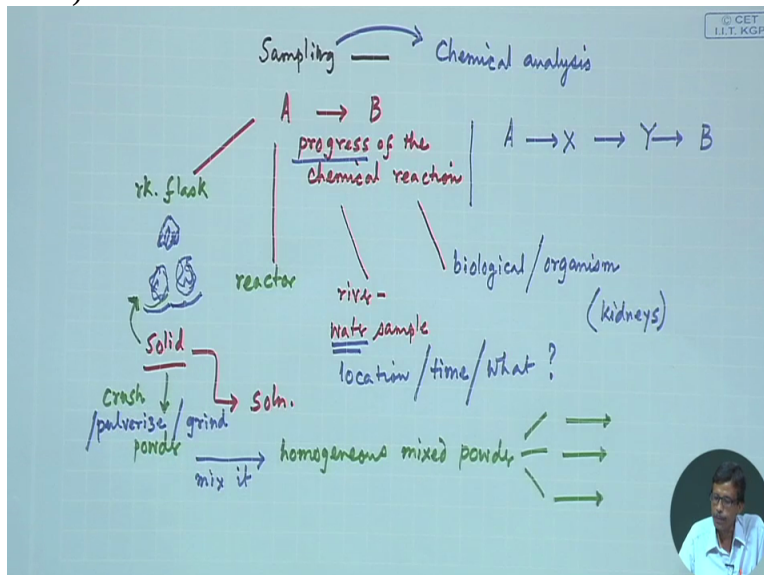 © CET
I.I.T. KGP
Sampling — Chemical analysis
A → B
progress of the
chemical reaction
A → X → Y → B
rk. flask
reactor
river -
water sample
location / time / What ?
biological / organism
(kidneys)
Solid
→ Soln.
crush
/pulverize / grind
powder
mix it
homogeneous mixed powder